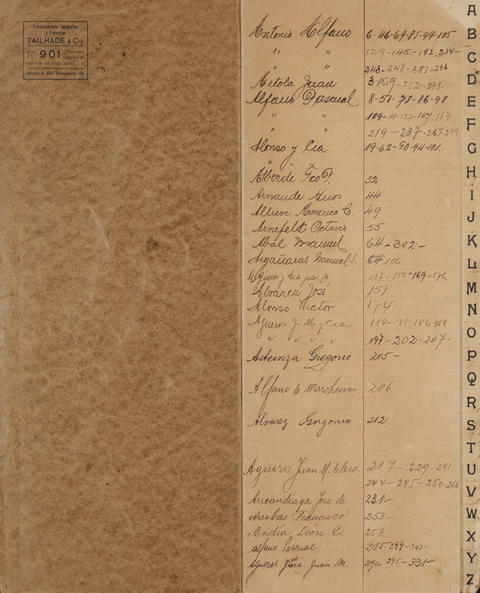 TAILHADE & Cia.
No. 901
Antonio Alfano 6-46-69-85-99-105
" " 129-145-192-234-
" " 243-248-281-296
Artola Juan 3-159-252-293-
Alfano Pascual 8-51-78-86-98
" " 109-
" " 219-237-267-299
Alonso y Cia 19-62-90-94-101.
Alberdi Fco P. 32
Arnaude Hnos 44
Altieri Americo C. 49
Arnefeldt Octavio 55
Abál Manuel 64-302-
Argañaras Manuel S.
Juan M. 137-152-169-176
Alvarez José 151
Alonso Victor 174
Agueros J. M. y Cia 180-181-186-188
" " " " 197-202-207-
Asteinza Gregorio 205-
Alfano & Marchesini 206
Alvarez Gorgonio 212
Agueros Juan M. 217-229-241
244-245-250-266
Arrandiaga Jose de 231-
Arribas Francisco 253
Andia León C. 258
Alfano Pascual 285-299-
Agueros Juan M. 290-295-331-
A
B
C
D
E
F
G
H
I
J
K
L
M
N
O
P
Q
R
S
T
U
V
W
X
Y
Z